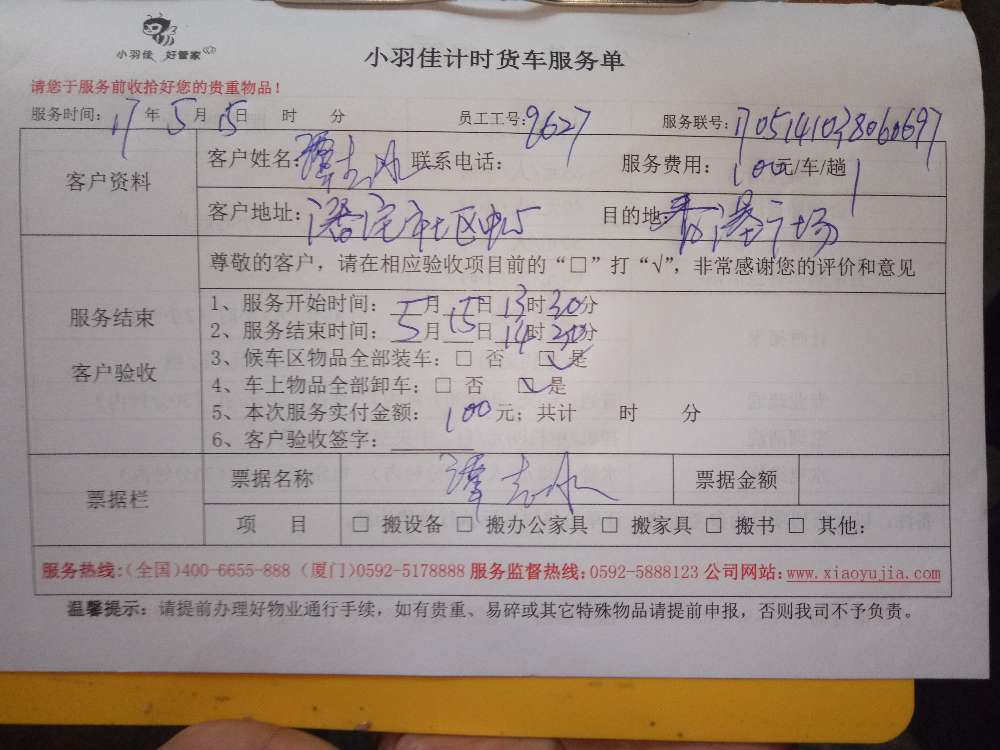 小羽佳 好管家
小羽佳计时货车服务单
请您于服务前收拾好您的贵重物品！
服务时间：17年5月15日 时 分 员工工号：9627 服务联号：1705141038060697
客户资料
客户姓名：谭志冰 联系电话： 服务费用：100元/车/趟
客户地址：潘宅社区中心 目的地：广场
尊敬的客户，请在相应验收项目前的“□”打“√”，非常感谢您的评价和意见
服务结束
客户验收
1、服务开始时间：5月15日13时30分
2、服务结束时间：5月15日14时30分
3、候车区物品全部装车：□ 否 ☑ 是
4、车上物品全部卸车：□ 否 ☑ 是
5、本次服务实付金额：100元；共计 时 分
6、客户验收签字：
票据栏
票据名称 谭志冰 票据金额
项 目 □ 搬设备 □ 搬办公家具 □ 搬家具 □ 搬书 □ 其他：
服务热线：(全国)400-6655-888 (厦门)0592-5178888 服务监督热线：0592-5888123 公司网站：www.xiaoyujia.com
温馨提示：请提前办理好物业通行手续，如有贵重、易碎或其它特殊物品请提前申报，否则我司不予负责。